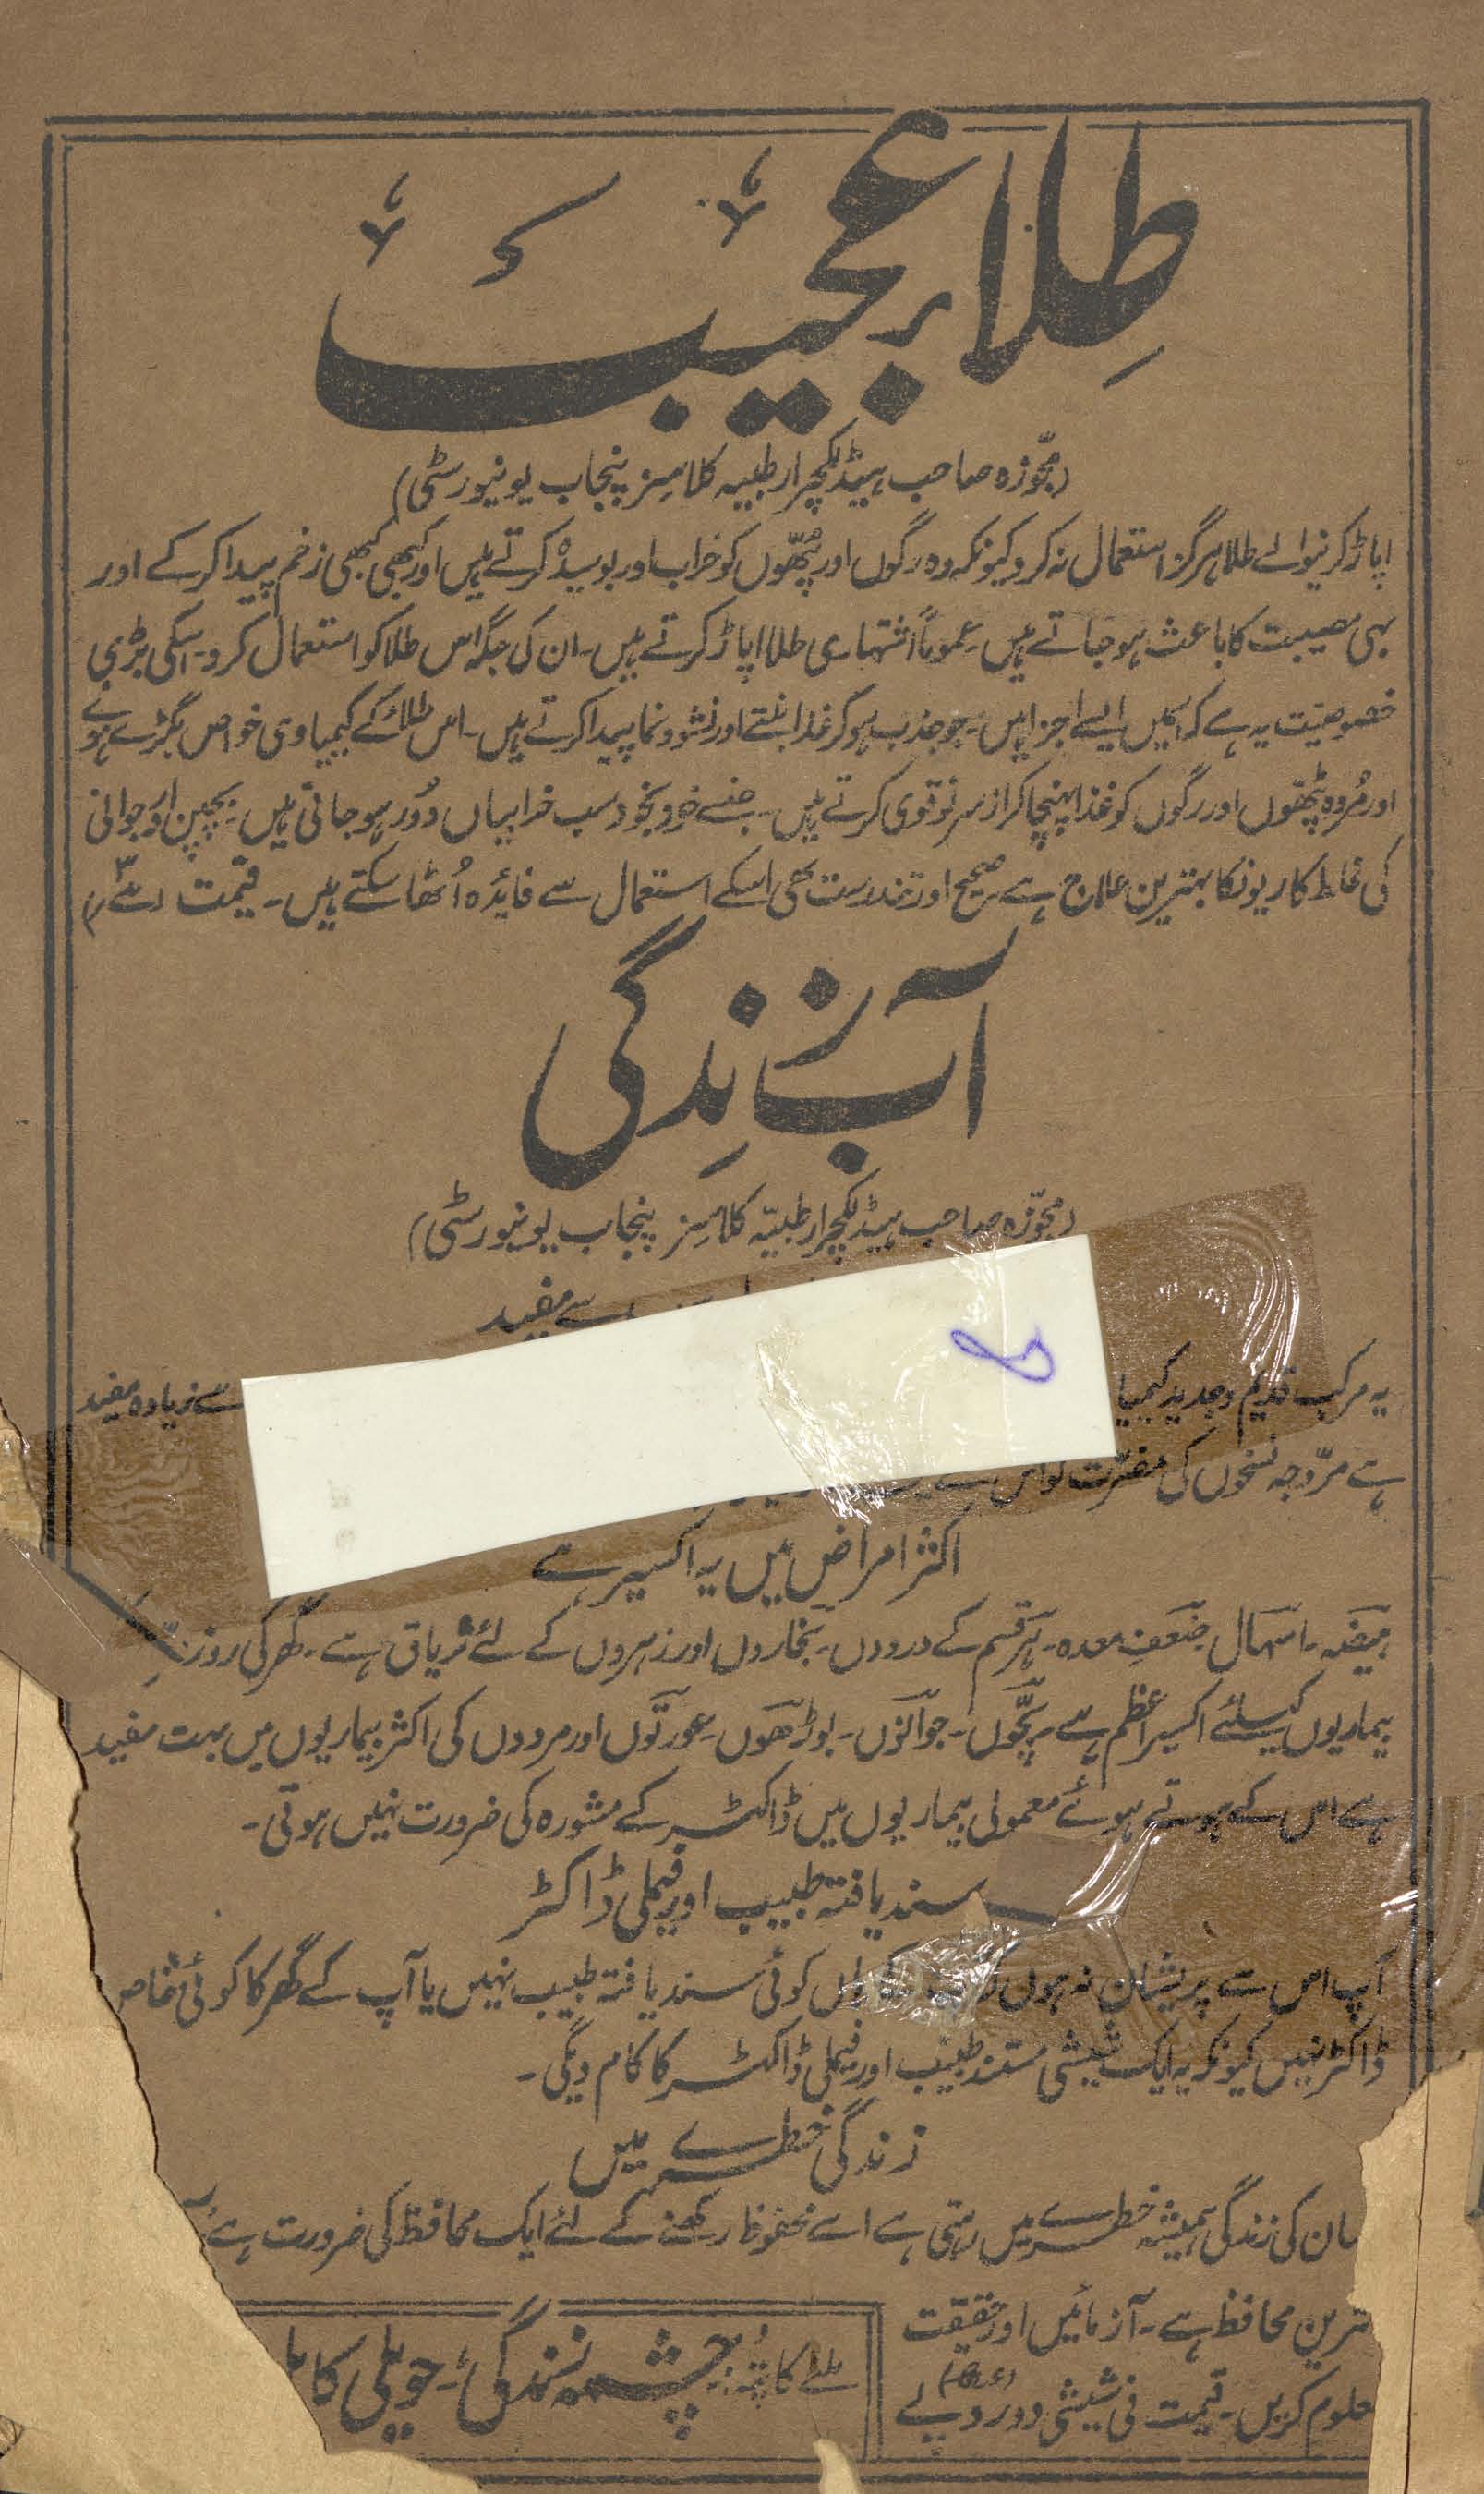 طِلا بر عجیب
(مجوّزہ صاحب ہیڈ لکچرار طبیہ کلاسز پنجاب یونیورسٹی)
اپاڑ کرنیوالے طلا ہرگز استعمال نہ کرو کیونکہ وہ رگوں اور پٹھّوں کو خراب اور بوسیدہ کرتے ہیں اور کبھی کبھی زخم پیدا کر کے اور
بہی مصیبت کا باعث ہو جاتے ہیں۔ عموماً اشتہاری طلا اپاڑ کرتے ہیں۔ ان کی جگہ اس طلا کو استعمال کرو۔ اسکی بڑی
خصوصیّت یہ ہے کہ اسمیں ایسے اجزا ہیں۔ جو جذب ہو کر غذا بنتے اور نشوونما پیدا کرتے ہیں۔ اس طلائے کے کیمیاوی خواص بگڑے ہوئے
اور مُردہ پٹھّوں اور رگوں کو غذا پہنچا کر از سر نو قوی کرتے ہیں۔ جنسے خود بخود سب خرابیاں دُور ہو جاتی ہیں۔ بچپن اور جوانی
کی غلط کاریونکا بہترین علاج ہے صحیح اور تندرست بھی اسکے استعمال سے فائدہ اُٹھا سکتے ہیں۔ قیمت
آبِ زندگی
(مجوّزہ صاحب ہیڈ لکچرار طبیّہ کلاسز پنجاب یونیورسٹی)
سے مفید
یہ مرکب قدیم و جدید کیمیا سے زیادہ مفید
ہے مرّوجہ نسخوں کی مضرّت کو اس سے
اکثر امراض میں یہ اکسیر ہے
ہیضہ۔ اسہال۔ ضعفِ معدہ۔ ہر قسم کے دردوں۔ بخاروں اور زہروں کے لئے تریاق ہے۔ گھر کی روز
بیماریوں کیلئے اکسیر اعظم ہے۔ بچّوں۔ جوانوں۔ بوڑھوں۔ عورتوں اور مردوں کی اکثر بیماریوں میں بہت مفید
ہے اس کے ہوتے ہوئے معمولی بیماریوں میں ڈاکٹر کے مشورہ کی ضرورت نہیں ہوتی۔
سند یافتہ طبیب اور فیملی ڈاکٹر
آپ اس سے پریشان نہ ہوں کوئی سند یافتہ طبیب نہیں یا آپ کے گھر کا کوئی خاص
ڈاکٹر نہیں کیونکہ یہ ایک شیشی مستند طبیب اور فیملی ڈاکٹر کا کام دیگی۔
زندگی خطرے میں
سان کی زندگی ہمیشہ خطرے میں رہتی ہے اسے محفوظ رکھنے کے لئے ایک محافظ کی ضرورت ہے
ترین محافظ ہے۔ آزمائیں اور حقیقت
علوم کریں۔ قیمت فی شیشی دو روپے
ملنے کا پتہ:۔ چشمہ زندگی۔ حویلی کا